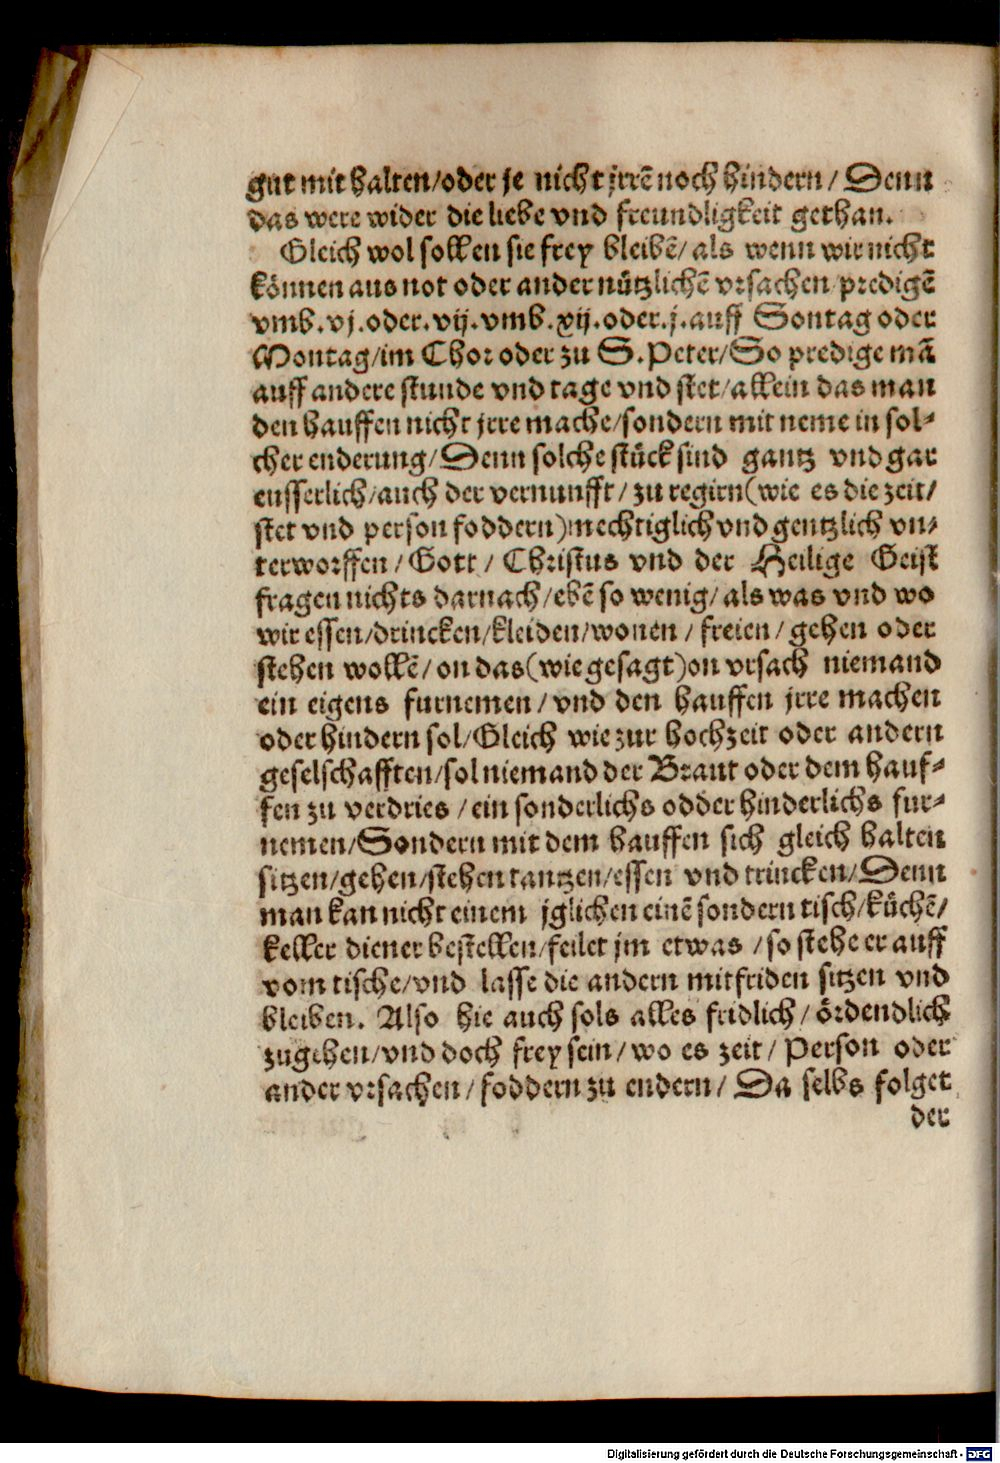 gut mit halten/oder je nicht jrrẽ noch hindern/ Denn
das were wider die liebe vnd freundligkeit gethan.
Gleich wol sollen sie frey bleibẽ/ als wenn wir nicht
können aus not oder ander nützlichẽ vrsachen predigẽ
vmb.vj.oder.vij.vmb.xij.oder.j.auff Sontag oder
Montag/im Chor oder zu S.Peter/So predige mã
auff andere stunde vnd tage vnd stet/allein das man
den hauffen nicht jrre mache/sondern mit neme in sol-
cher enderung/Denn solche stück sind gantz vnd gar
eusserlich/auch der vernunfft/ zu regirn(wie es die zeit/
stet vnd person foddern)mechtiglich vnd gentzlich vn-
terworffen/Gott/ Christus vnd der Heilige Geist
fragen nichts darnach/ebẽ so wenig/als was vnd wo
wir essen/drincken/kleiden/wonen/ freien/gehen oder
stehen wollẽ/on das(wie gesagt)on vrsach niemand
ein eigens furnemen/vnd den hauffen jrre machen
oder hindern sol/Gleich wie zur hochzeit oder andern
geselschafften/sol niemand der Braut oder dem hauf-
fen zu verdries/ein sonderlichs odder hinderlichs fur-
nemen/Sondern mit dem hauffen sich gleich halten
sitzen/gehen/stehen tantzen/essen vnd trincken/Denn
man kan nicht einem jglichen einẽ sondern tisch/küchẽ/
keller diener bestellen/feilet jm etwas/so stehe er auff
vom tische/vnd lasse die andern mit friden sitzen vnd
bleiben. Also hie auch sols alles fridlich/ördendlich
zugehen/vnd doch frey sein/wo es zeit/ Person oder
ander vrsachen/foddern zu endern/ Da selbs folget
der
Digitalisierung gefördert durch die Deutsche Forschungsgemeinschaft - DFG